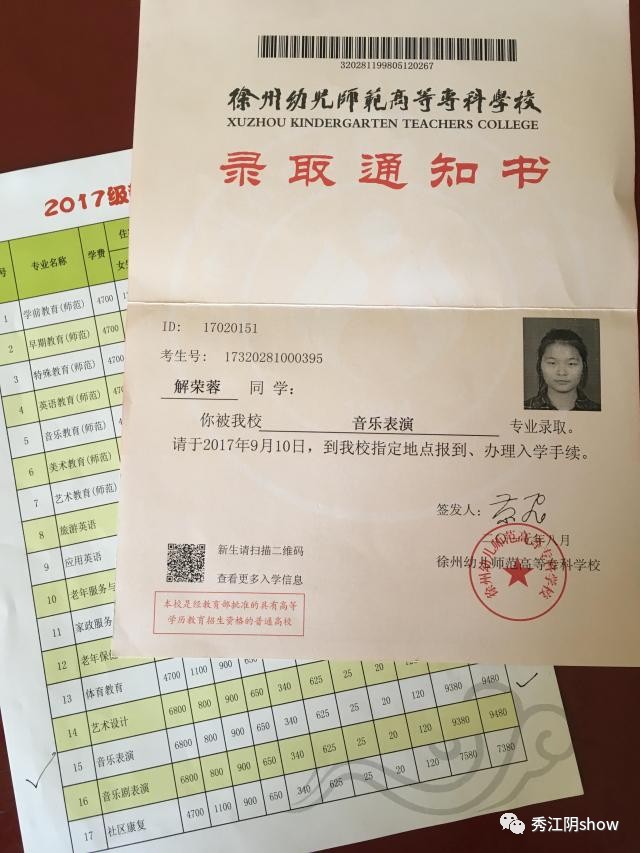 320281199805120267
徐州幼儿師範高等專科學校
XUZHOU KINDERGARTEN TEACHERS COLLEGE
录取通知书
ID: 17020151
考生号: 17320281000395
解荣蓉 同 学:
你被我校 音乐表演 专业录取。
请于2017年9月10日，到我校指定地点报到、办理入学手续。
签发人:
二〇一七年八月
徐州幼儿师范高等专科学校
徐州幼儿师范高等专科学校
新生请扫描二维码
查看更多入学信息
本校是经教育部批准的具有高等
学历教育招生资格的普通高校
2017级
号 专业名称 学费
1 学前教育(师范) 4700
2 早期教育(师范) 4700
3 特殊教育(师范) 4700
4 英语教育(师范)
5 音乐教育(师范)
6 美术教育(师范)
7 艺术教育(师范)
8 旅游英语
9 应用英语
10 老年服务与
11 家政服务
12 老年保
13 体育教育 4700 1100 900 650 340 625 25 20 120
14 艺术设计 6800 800 900 650 340 625 25 20 120 9380 9480
15 音乐表演 6800 800 900 650 340 625 25 20 120 9380 9480
16 音乐剧表演 6800 800 900 650 340 625 25 20 120 9380 9480
17 社区康复 4700 1100 900 650 340 625 25 20 120 7580 7380
秀江阴show